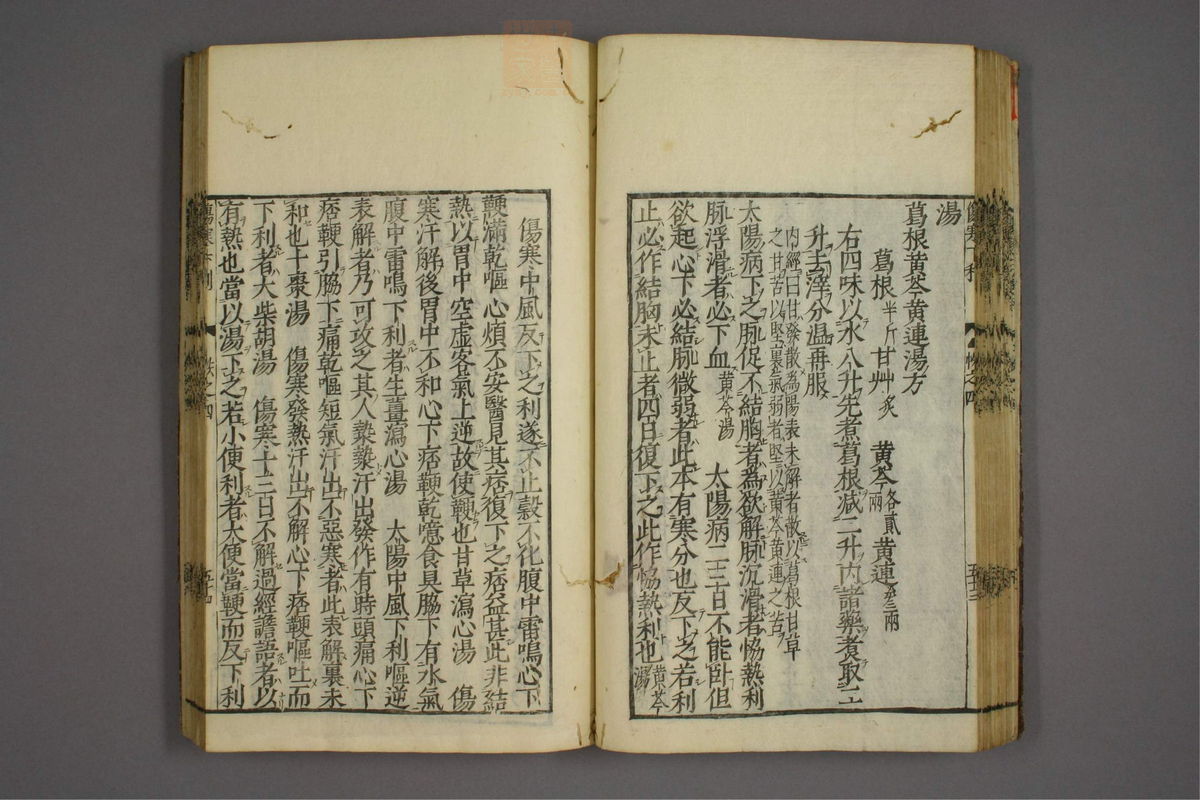 湯
葛根黄芩黄連湯方
葛根半斤 甘艸炙 黄芩各貳兩 黄連叁兩
右四味以水八升先煮葛根减二升内諸藥煮取二
升去滓分温再服
内經曰甘發散為陽表未解者散以葛根甘草
之甘苦以堅裏氣弱者堅以黄芩黄連之苦
太陽病下之脉促不結胸者為欲解脉沉滑者恊熱利
脉浮滑者必下血黄芩湯 太陽病二三日不能卧但
欲起心下必結脉微弱者此本有寒分也反下之若利
止必作結胸未止者四日復下之此作恊熱利也黄芩湯
傷寒中風反下之利遂不止穀不化腹中雷鳴心下
鞕滿乾嘔心煩不安醫見其痞復下之痞益甚此非結
熱以胃中空虚客氣上逆故使鞕也甘草瀉心湯 傷
寒汗解後胃中不和心下痞鞕乾噫食臭脇下有水氣
腹中雷鳴下利者生薑瀉心湯 太陽中風下利嘔逆
表解者乃可攻之其人漐漐汗出發作有時頭痛心下
痞鞕引脇下痛乾嘔短氣汗出不惡寒者此表解裏未
和也十棗湯 傷寒發熱汗出不解心下痞鞕嘔吐而
下利者大柴胡湯 傷寒十三日不解過經譫語者以
有熱也當以湯下之若小便利者大便當鞕而反下利